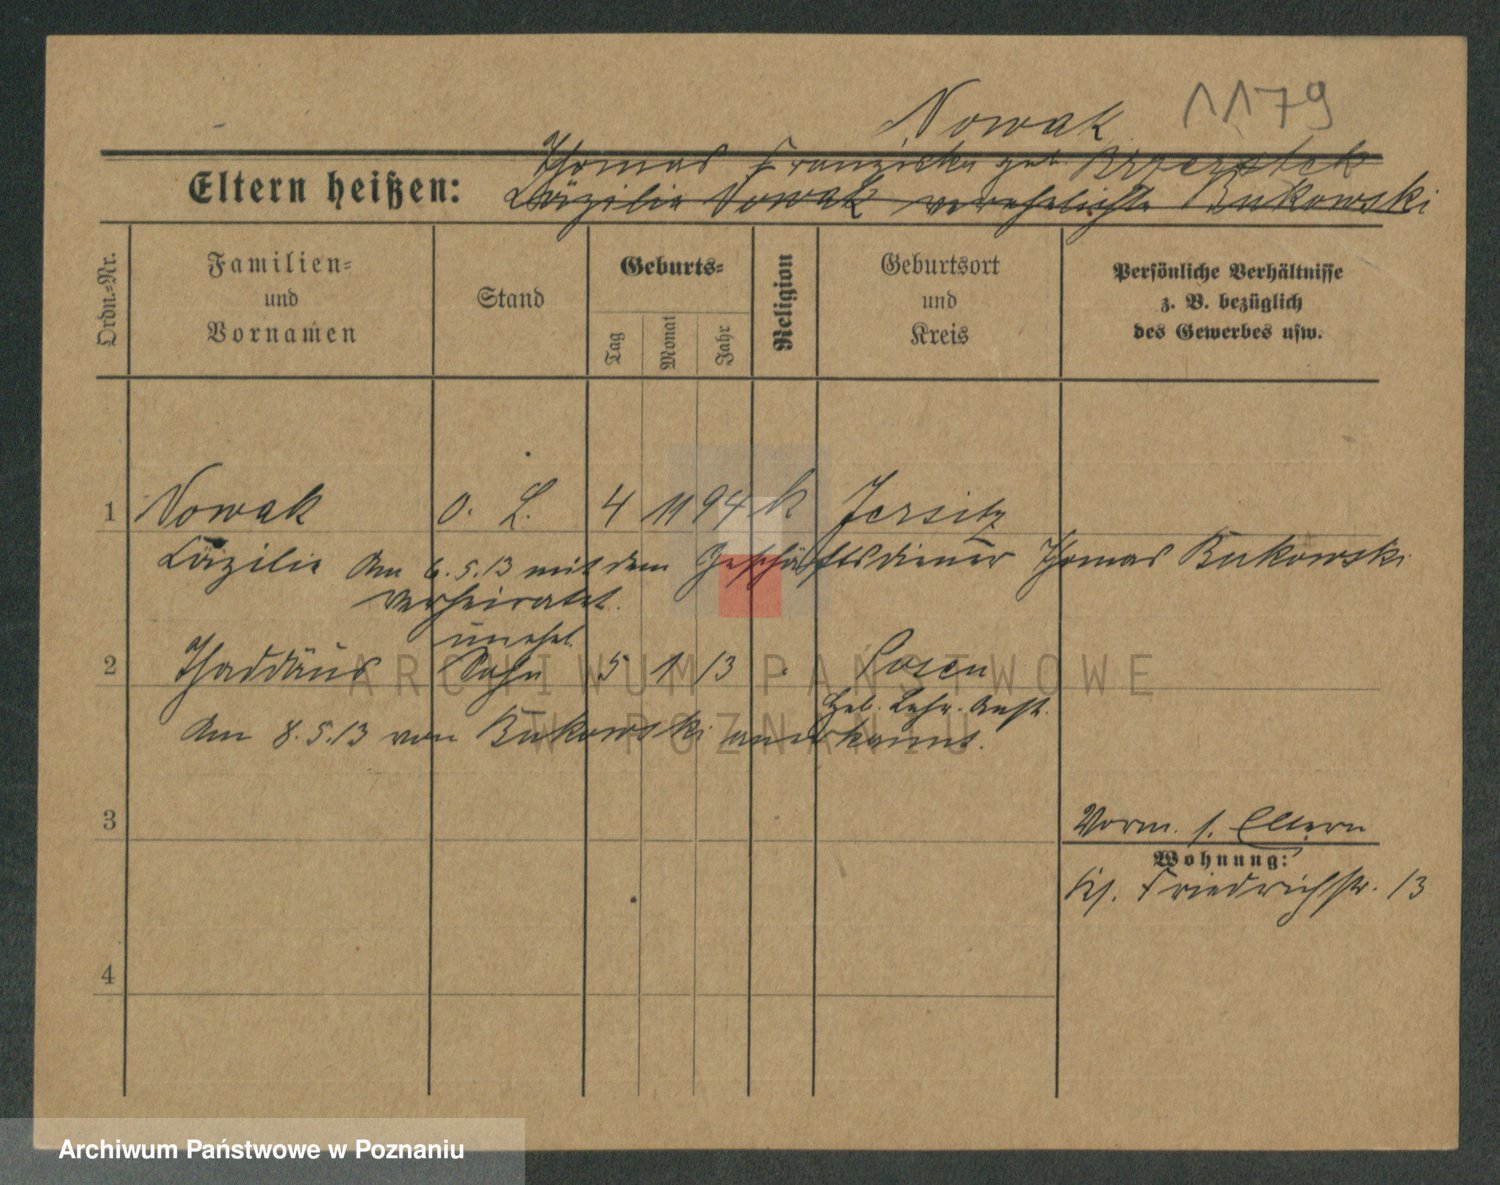 Nowak 1179
Thomas Franziska geb.
Eltern heißen: Cäzilie Nowak verehelichte Bukowski
Ordn.-Nr.
Familien-
und
Vornamen
Stand
Geburts-
Tag
Monat
Jahr
Religion
Geburtsort
und
Kreis
Persönliche Verhältnisse
z. B. bezüglich
des Gewerbes usw.
1 Nowak o. L. 4 11 94 k Jersitz
Cäzilie Am 6.5.13 mit dem Geschäftsdiener Thomas Bukowski
verheiratet.
unehel.
2 Thaddäus Sohn 5 1 13 . Posen
Heb. Lehr. Anst.
Am 8.5.13 von Bukowski anerkannt.
3
Vorm. s. Eltern
Wohnung:
Friedrichstr. 13
4
ARCHIWUM PAŃSTWOWE
W POZNANIU
Archiwum Państwowe w Poznaniu